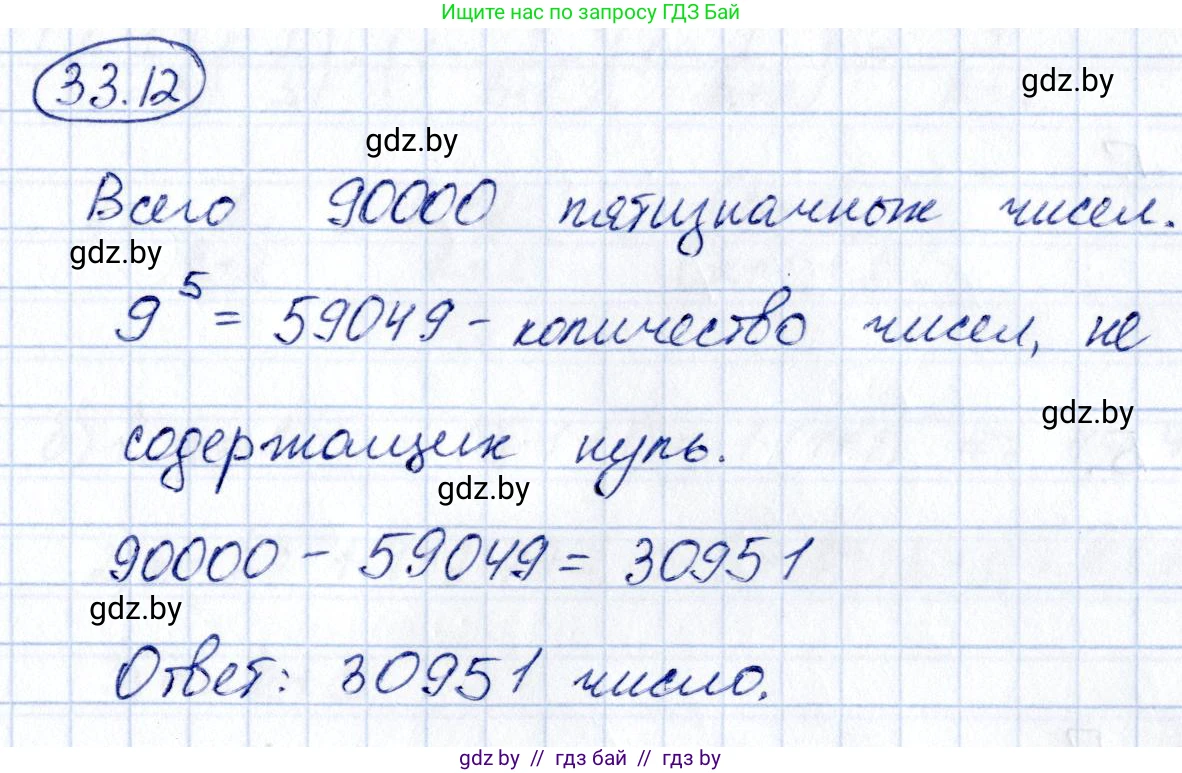 Ищите нас по запросу ГДЗ Бай
33.12
gdz.by
gdz.by
Всего 90000 пятизначных чисел.
gdz.by
9⁵ = 59049 - количество чисел, не
gdz.by
содержащих нуль.
gdz.by
90000 - 59049 = 30951
gdz.by
Ответ: 30951 число.
gdz.by // гдз бай // gdz.by